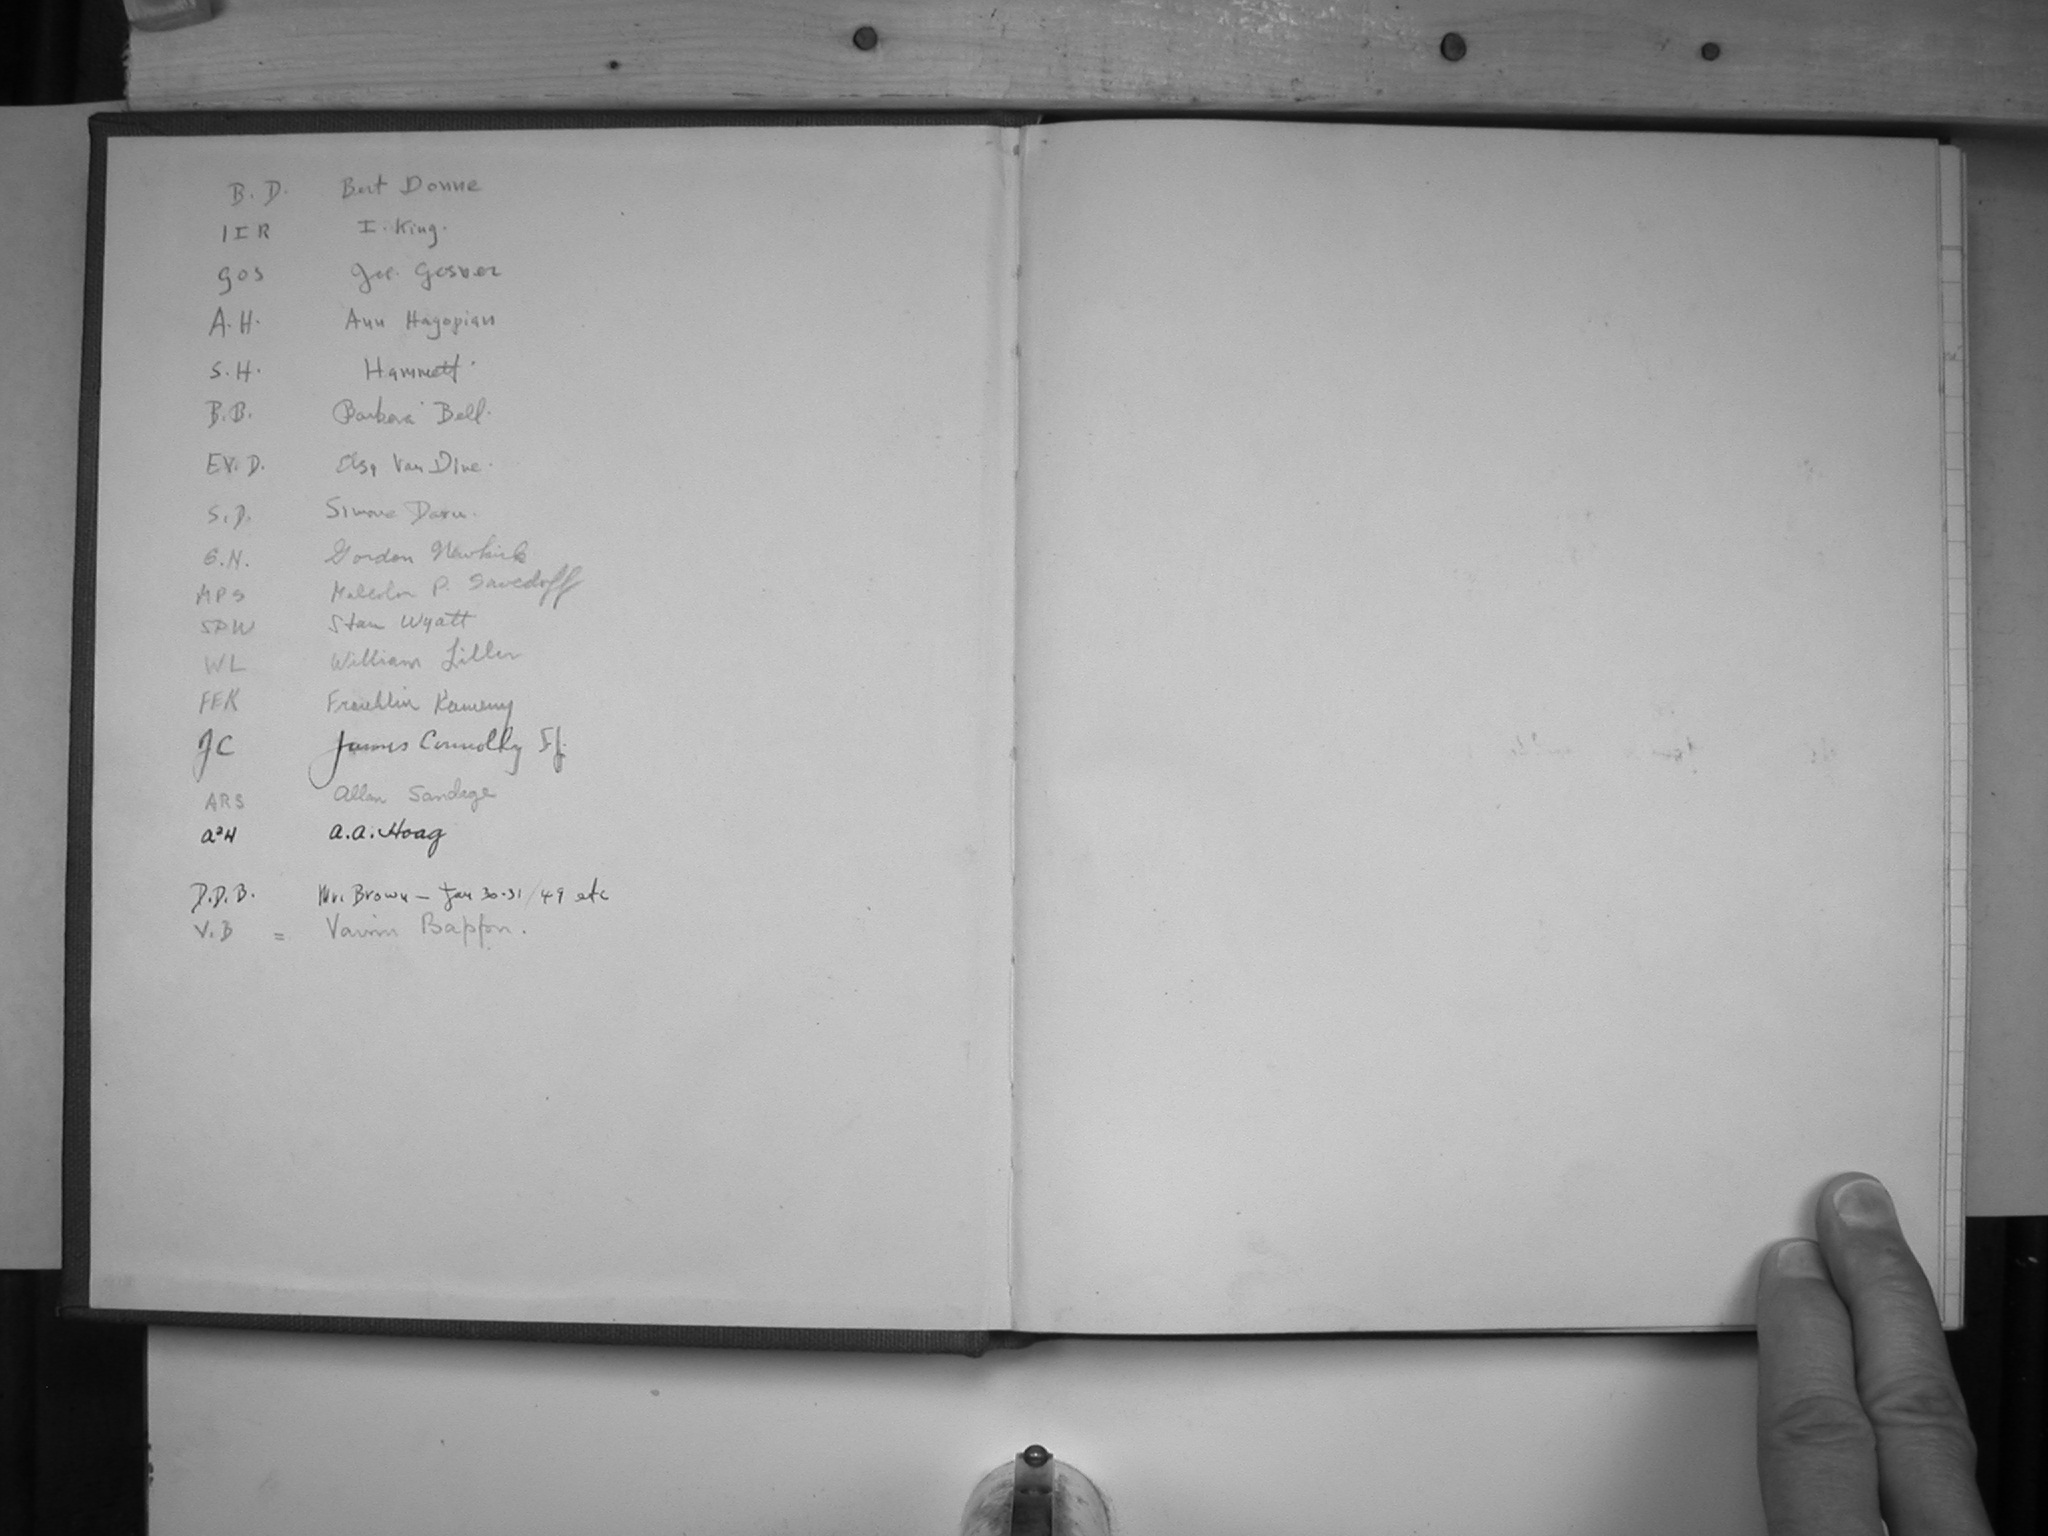 B. D. Bert Donne
IIR I. King.
GOS Gosner
A. H. Ann Hagopian
S. H. Hammett.
B. B. Barbara Bell.
E V. D. Elsa Van Dine.
S. D. Simone Daru.
G. N. Gordon Newkirk
MPS Malcolm P. Savedoff
SPW Stan Wyatt
WL William Liller
FEK Franklin Kameny
JC James Connolly SJ.
ARS Allan Sandage
a²H a.a. Hoag
D. D. B. Mr. Brown — Jan 30-31/49 etc
V. B = Bappu.